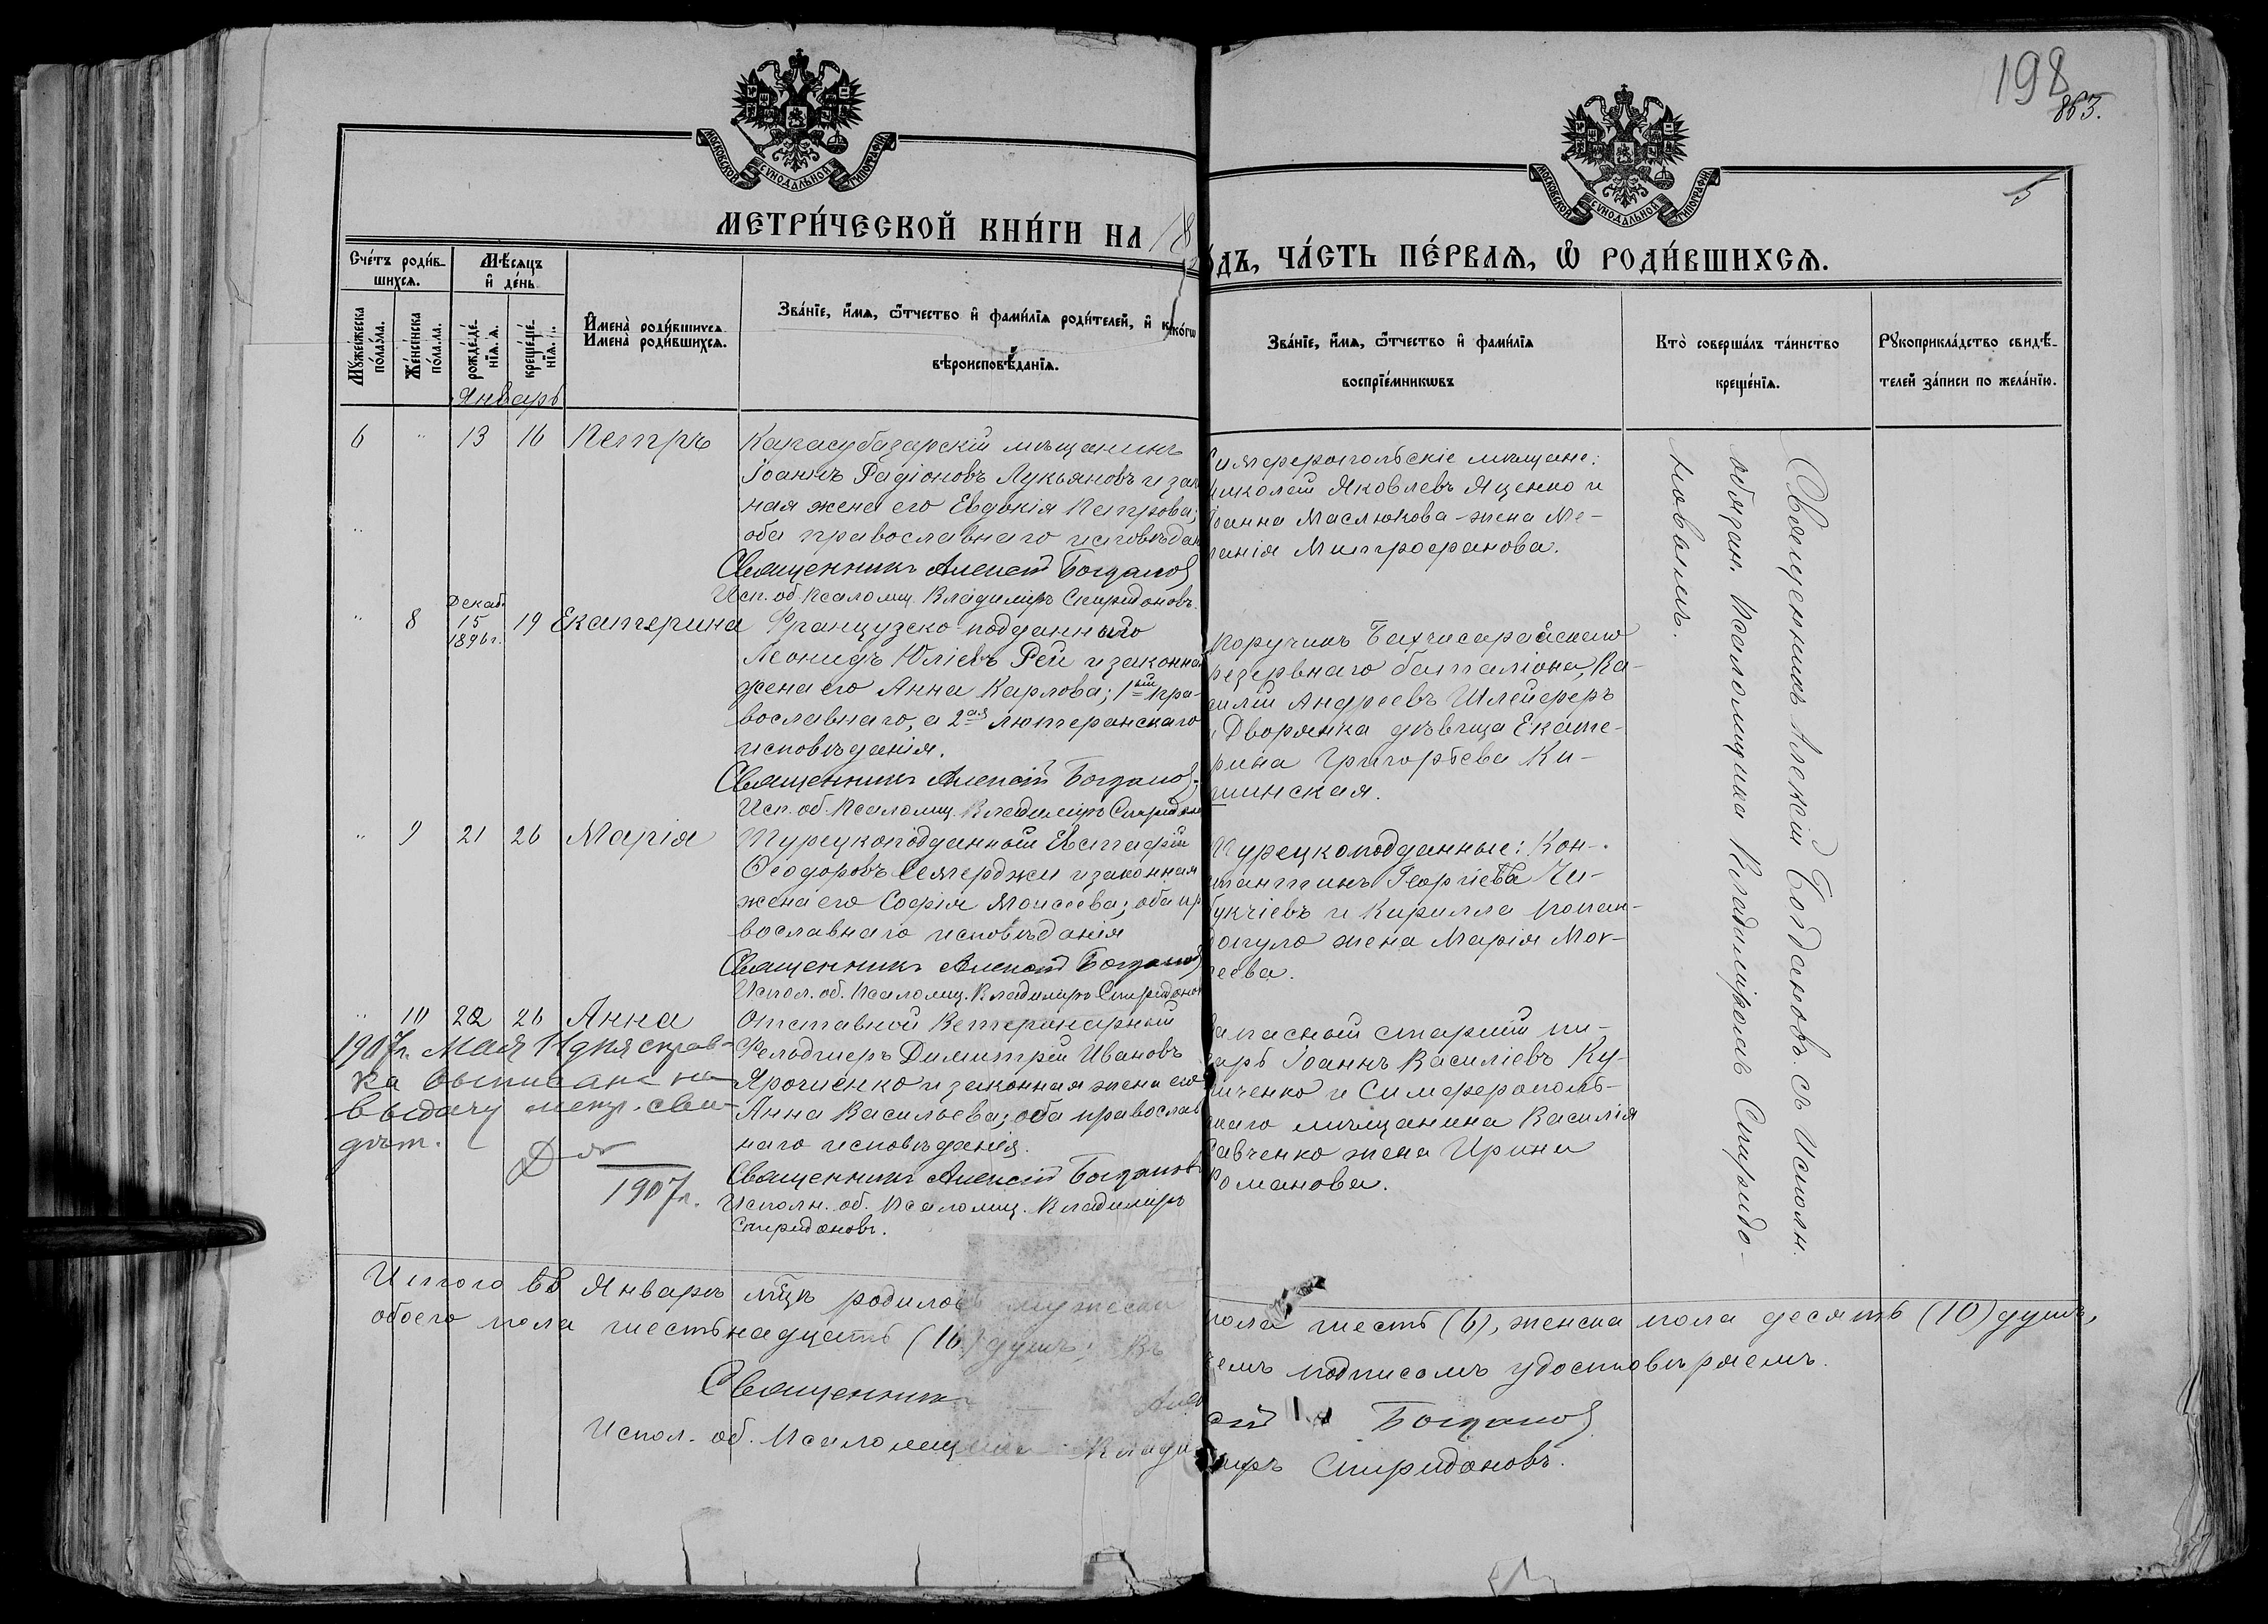 198
863.
5
МОСКОВСКОЙ СѴНОДАЛЬНОЙ ТИПОГРАФІИ
МОСКОВСКОЙ СѴНОДАЛЬНОЙ ТИПОГРАФІИ
МЕТРИ́ЧЕСКОЙ КНИ́ГИ НА 18
ДЪ, ЧА́СТЬ ПЕ́РВАѦ, Ѽ РОДИ́ВШИХСѦ.
Сче́тъ роди́в-
шихсѧ.
Мѣ́сѧцъ
и҆ де́нь.
Мꙋ́жеска
по́ла.
Же́нска
по́ла.
рожде́-
нїѧ.
креще́-
нїѧ.
И҆мена̀ роди́вшихсѧ.
Зва́нїе, и҆́мѧ, ѻ҆́тчество и҆ фами́лїѧ роди́телей, и҆ ко́гѡ
вѣроисповѣ́данїѧ.
Зва́нїе, и҆́мѧ, ѻ҆́тчество и҆ фами́лїѧ
воспрїе́мникѡвъ
Кто̀ соверша́лъ та́инство
креще́нїѧ.
Рꙋкоприкла́дство свидѣ́-
телей за́писи по жела́нїю.
Январь
6 " 13 16 Петръ
Карасубазарскій мѣщанинъ
Іоаннъ Радіоновъ Лукьяновъ и зак
ная жена его Евдокія Петрова;
оба православнаго исповѣдан
Священникъ Алексій Богданов
Исп. об. Псаломщ. Владиміръ Спиридоновъ.
имферопольскіе мѣщане:
иколай Яковлевъ Яценко и
оанна Маслюкова жена Ме-
ланія Митрофанова.
" 8 Декаб. 15 1896 г. 19 Екатерина
Французско-подданный
Леонидъ Юліевъ Рей и законная
жена его Анна Карлова; 1ый пра-
вославнаго, а 2ая лютеранскаго
исповѣданія.
Священникъ Алексій Богданов.
Исп. об. Псаломщ. Владиміръ Спиридон
Поручикъ Бахчисарайскаго
резервнаго баталіона, Ва-
силій Андреевъ Шлейферъ
и Дворянка дѣвица Екате-
рина Григорьева Ки-
шинская.
" 9 21 26 Марія
Турецкоподданный Евстафій
Ѳеодоровъ Семерджи и законная
жена его Софія Моисеева; оба пр
вославнаго исповѣданія
Священникъ Алексій Богданов
Испол. об. Псаломщ. Владиміръ Спиридонов
Турецкоподданные: Кон-
стантинъ Георгіева Чи-
букчіевъ и Кирилла Попан-
допуло жена Марія Мои-
сеева.
" 10 22 26 Анна
Отставной Ветеринарный
Фельдшеръ Димитрій Ивановъ
Ярошенко и законная жена его
Анна Васильева; оба православ
наго исповѣданія.
Священникъ Алексій Богданов
Исполн. об. Псаломщ. Владиміръ
Спиридоновъ.
апасный старшій пи-
сарь Іоаннъ Василіевъ Ку-
ченко и Симферополь-
скаго мѣщанина Василія
Савченко жена Ирина
Романова.
1907 г. Мая 11 дня справ-
ка выписана на
выдачу метр. сви-
дѣт.
1907 г.
Священникъ Алексій Богдановъ съ Исполн.
обязан. Псаломщика Владиміромъ Спиридо-
новымъ.
Итого въ Январѣ мцѣ родилось мужеска
пола шесть (6), женска пола десять (10) душъ,
обоего пола шестьнадцать (16) душъ; въ
чемъ подписомъ удостовѣряемъ.
Священник Алексій Богданов
Испол. об. Псаломщика Владиміръ Спиридоновъ.